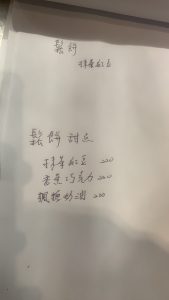 鬆餅
抹茶紅豆
鬆餅 甜点
抹茶紅豆 200
香蕉巧克力 200
楓糖奶油 200